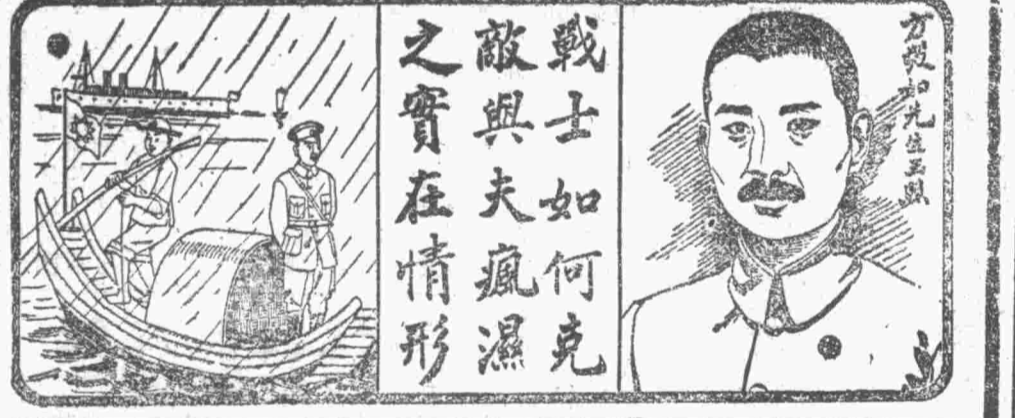 方毅如先生玉照
戰士如何克
敵與夫瘋濕
之實在情形